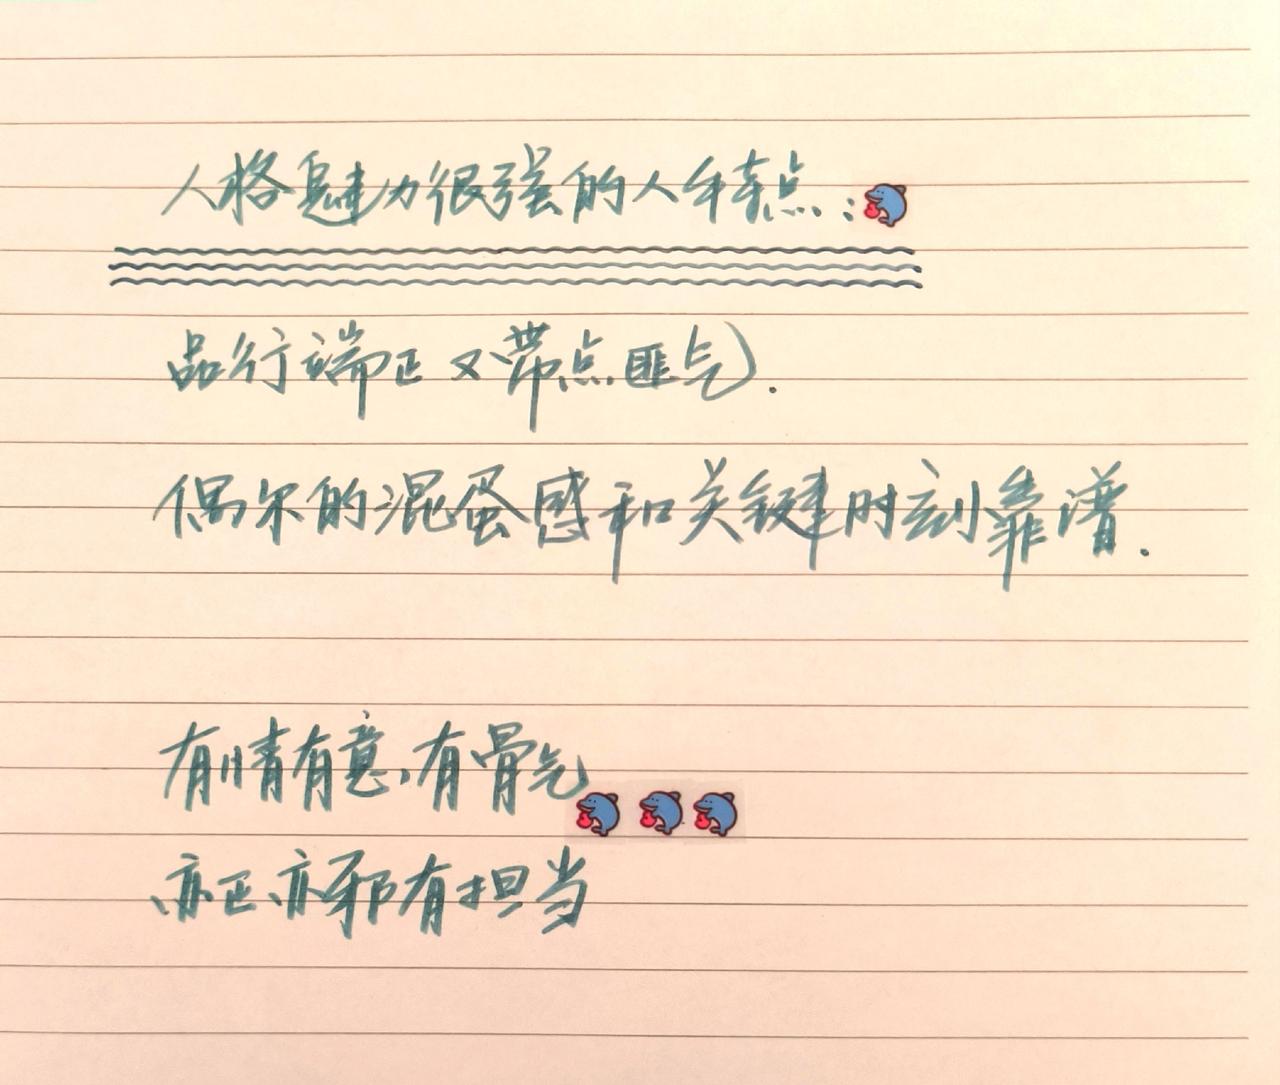 人格魅力很强的人特点:
品行端正又带点匪气.
偶尔的混蛋感和关键时刻靠谱.
有情有意,有骨气
亦正亦邪有担当